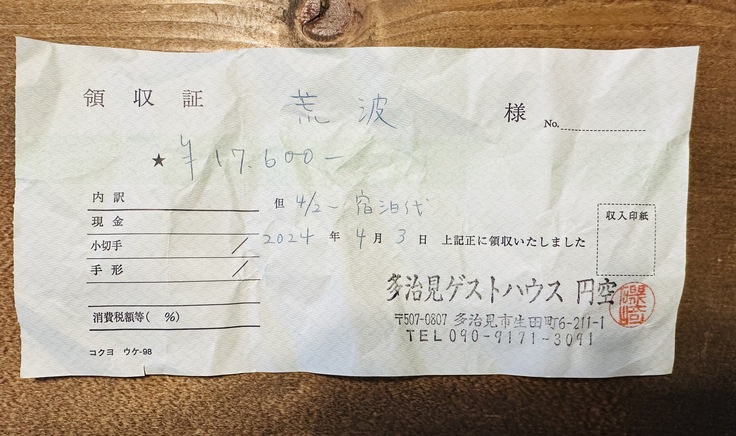 領収証 荒波 様 No.
★ ¥17,600-
内訳
現金
小切手 /
手形 /
消費税額等( %)
コクヨ ウケ-98
但 4/2~宿泊代
2024年4月3日 上記正に領収いたしました
収入印紙
多治見ゲストハウス 円空
〒507-0807 多治見市生田町6-211-1
TEL 090-9171-3091